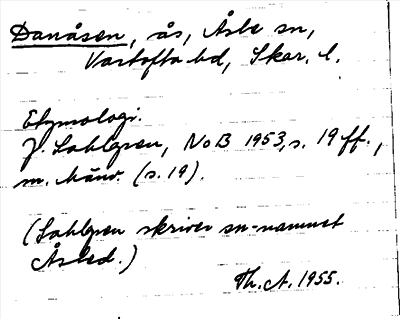 Danåsen, ås, Åsle sn,
Vartofta hd, Skar. l.
Etymologi.
J. Sahlgren, NoB 1953, s. 19 ff.,
m. hänv. (s. 19).
(Sahlgren skriver sn-namnet
Åsled.)
Th. A. 1955.